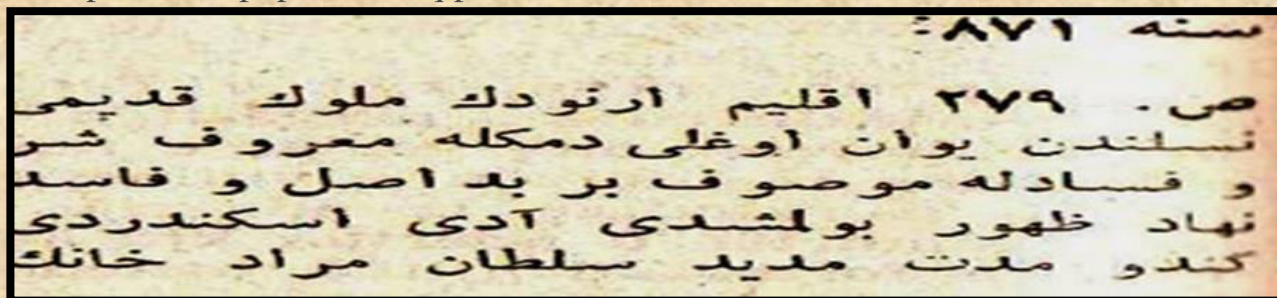 سنه ٨٧١:
ص. ٢٧٩ اقليم ارنودك ملوك قديمى
نسلندن يوان اوغلى دمكله معروف شر
و فسادله موصوف بر بد اصل و فاسد
نهاد ظهور بولمشدى آدى اسكندردى
كندو مدت مديد سلطان مراد خانك